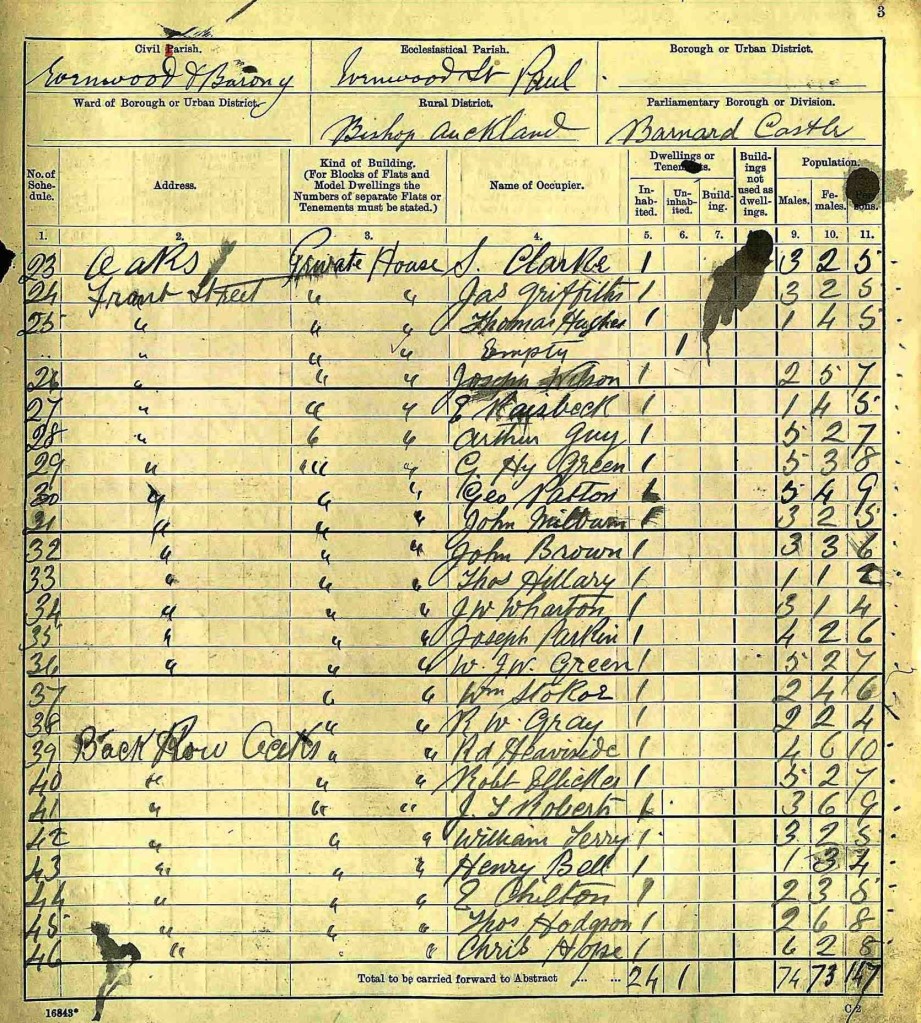 3
Civil Parish. Ecclesiastical Parish. Borough or Urban District.
Evenwood & Barony Evenwood St Paul
Ward of Borough or Urban District. Rural District. Parliamentary Borough or Division.
Bishop Auckland Barnard Castle
No. of Schedule. Address. Kind of Building. (For Blocks of Flats and Model Dwellings the Numbers of separate Flats or Tenements must be stated.) Name of Occupier. Dwellings or Tenements. Inhabited. Uninhabited. Building. Buildings not used as dwellings. Population. Males. Females.
1. 2. 3. 4. 5. 6. 7. 9. 10. 11.
23 Oaks Private House S. Clarke 1 3 2 5
24 Front Street " " Jas Griffiths 1 3 2 5
25 " " " Thomas Hughes 1 1 4 5
" " " " Empty 1
26 " " " Joseph Wilson 1 2 5 7
27 " " " E Raisbeck 1 1 4 5
28 " " " Arthur Guy 1 5 2 7
29 " " " G Hy Green 1 5 3 8
30 " " " Geo Patton 1 5 4 9
31 " " " John Milburn 1 3 2 5
32 " " " John Brown 1 3 3 6
33 " " " Thos Hillary 1 1 1 2
34 " " " J W Wharton 1 3 1 4
35 " " " Joseph Parkin 1 4 2 6
36 " " " W. J W. Green 1 5 2 7
37 " " Wm Stokoe 1 2 4 6
38 " " R W. Gray 1 2 2 4
39 Back Row Oaks " " Rd Heaviside 1 4 6 10
40 " " " Robt 1 5 2 7
41 " " " J. T Roberts 1 3 6 9
42 " " " William Terry 1 3 2 5
43 " " " Henry Bell 1 1 3 4
44 " " " E Chilton 1 2 3 5
45 " " " Thos Hodgson 1 2 6 8
46 " " " Chris Hope 1 6 2 8
Total to be carried forward to Abstract ... ... 24 1 74 73 147
16843* C 2